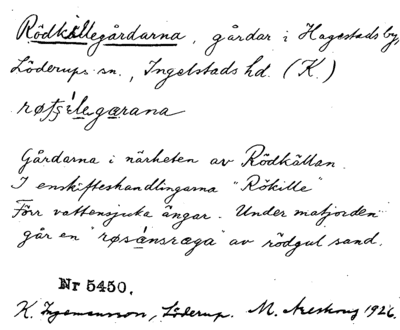 Rödkillegårdarna, gårdar i Hagestads by,
Löderups sn., Ingelstads hd. (K.)
Gårdarna i närheten av Rödkällan.
I enskifteshandlingarna "Rökille"
Förr vattensjuka ängar. Under matjorden
går en "røsánsræga" av rödgul sand.
Nr 5450.
K. Ingemansson, Löderup. M. Areskoug 1926.